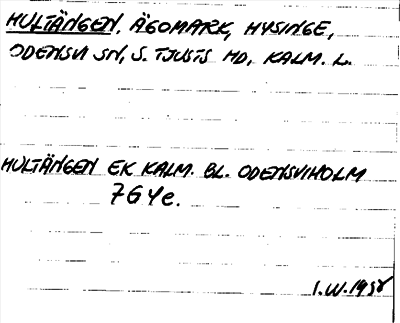 HULTÄNGEN, ÄGOMARK, HYSINGE,
ODENSVI SN, S. TJUSTS HD, KALM. L.
HULTÄNGEN EK KALM. BL. ODENSVIHOLM
7G4e.
I.W. 1958